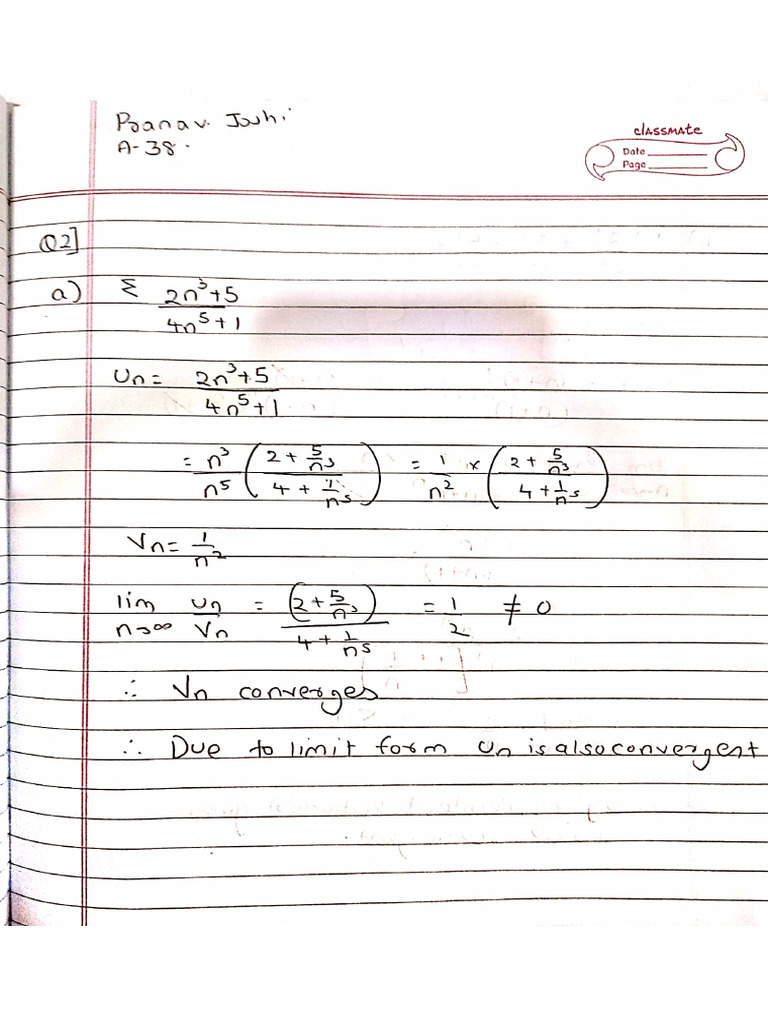 Pranav. Joshi
A-38.
classmate
Date
Page
Q2]
a) Σ (2n³+5)/(4n⁵+1)
Un = (2n³+5)/(4n⁵+1)
= n³/n⁵ ((2 + 5/n³)/(4 + 1/n⁵)) = 1/n² × ((2 + 5/n³)/(4 + 1/n⁵))
Vn = 1/n²
lim n→∞ Un/Vn = (2 + 5/n³)/(4 + 1/n⁵) = 1/2 ≠ 0
∴ Vn converges
∴ Due to limit form Un is also convergent